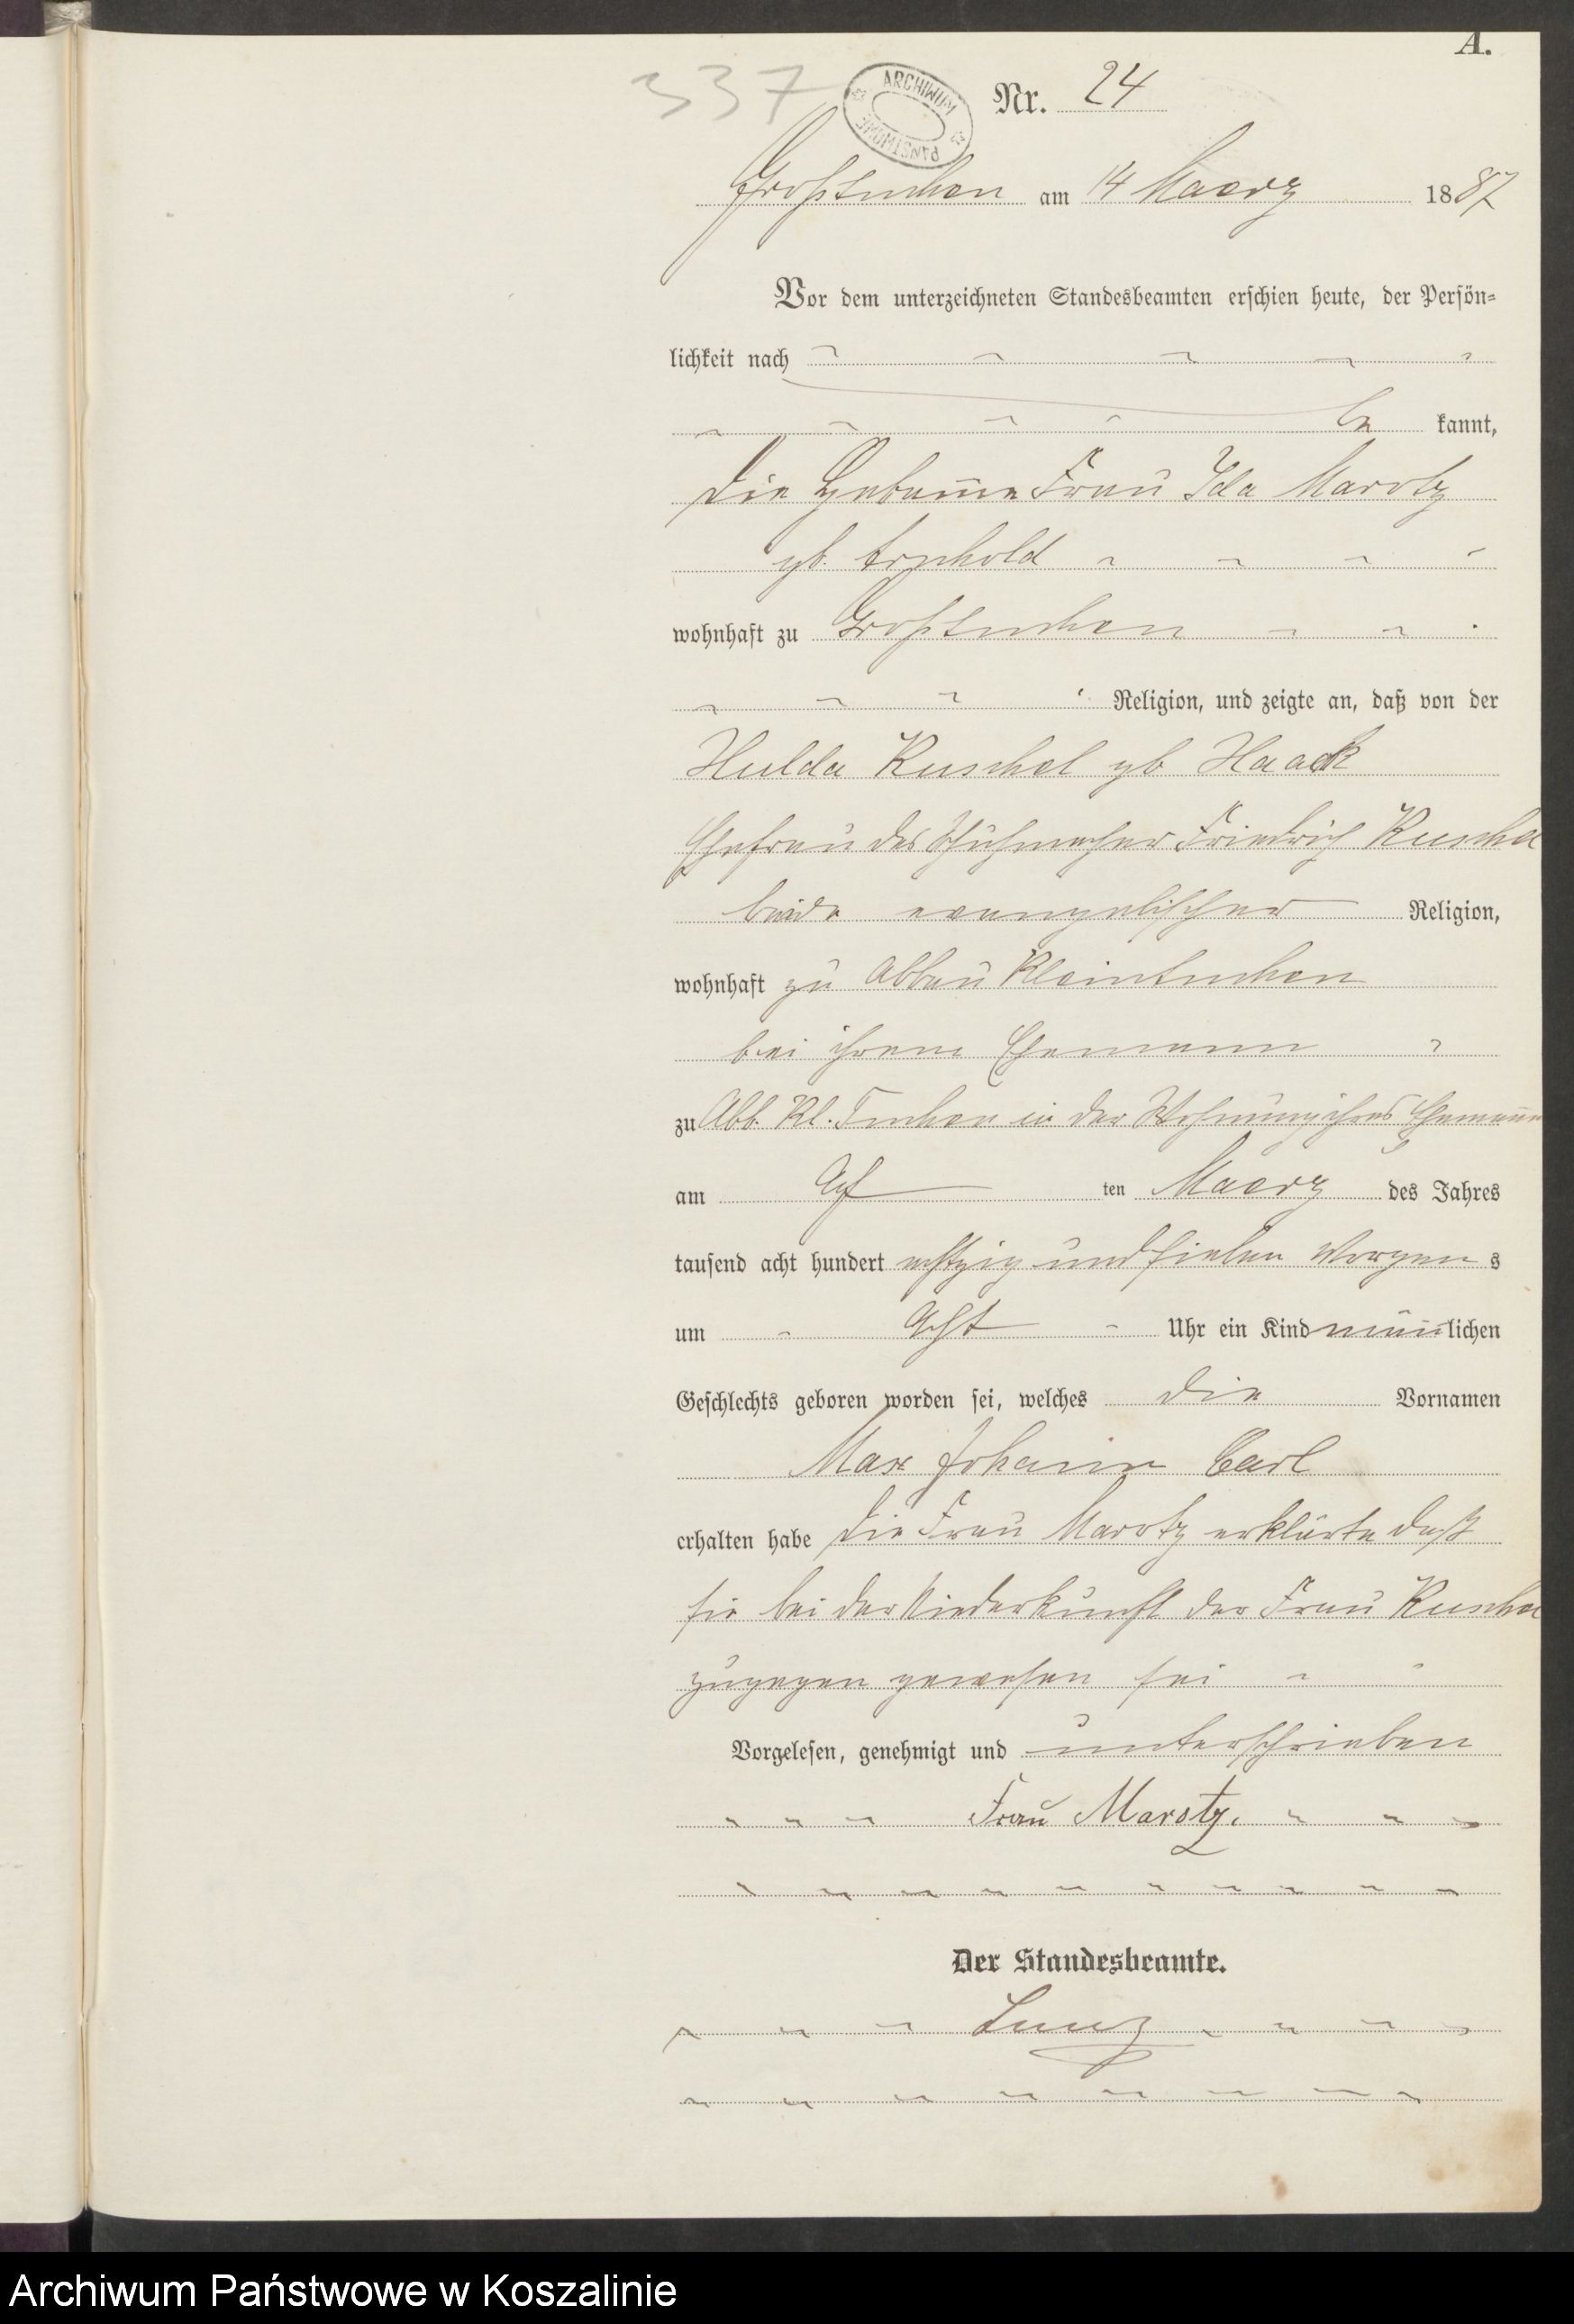 A.
337
ARCHIWUM PAŃSTWOWE
Nr. 24
Großtuchen am 14 Maerz 1887
Vor dem unterzeichneten Standesbeamten erschien heute, der Persön-
lichkeit nach
be kannt,
die Hebam̅e Frau Ida Marotz
gb.
wohnhaft zu Großtuchen
Religion, und zeigte an, daß von der
Hulda Kuschel gb Haack
Ehefrau des Schuhmacher Friedrich Kusche
beide evangelischer Religion,
wohnhaft zu Abbau Kleintuchen
bei ihrem Ehemann
zu Abb. Kl. Tuchen in der Wohnung ihres Ehemann
am ten Maerz des Jahres
tausend acht hundert achtzig und sieben Morgen s
um Acht Uhr ein Kind män̅lichen
Geschlechts geboren worden sei, welches die Vornamen
Max Johann Carl
erhalten habe die Frau Marotz erklärte daß
sie bei der Niederkunft der Frau Kusche
zugegen gewesen sei
Vorgelesen, genehmigt und unterschrieben
Frau Marotz.
Der Standesbeamte.
Archiwum Państwowe w Koszalinie